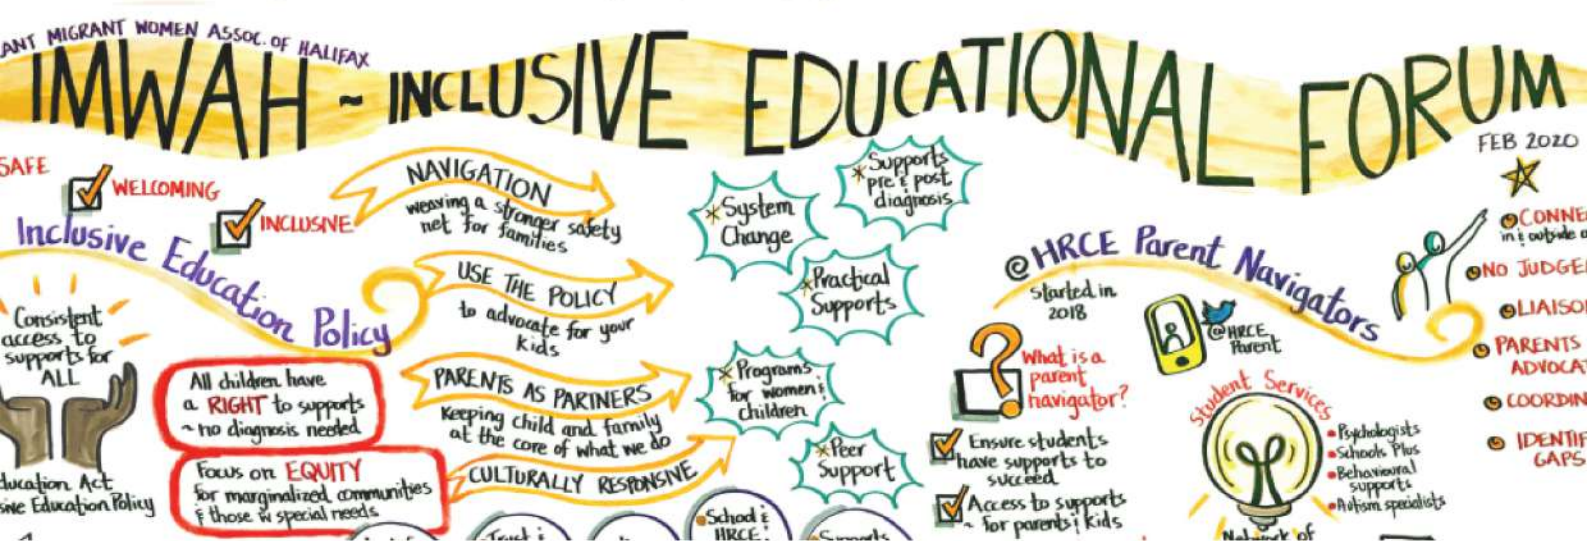 MIGRANT WOMEN ASSOC. OF HALIFAX
IMWAH ~ INCLUSIVE EDUCATIONAL FORUM
FEB 2020
SAFE
WELCOMING
INCLUSIVE
Inclusive Education Policy
Consistent
access to
supports for
ALL
Education Policy
All children have
a RIGHT to supports
~ no diagnosis needed
Focus on EQUITY
for marginalized communities
& those w special needs
NAVIGATION
weaving a stronger safety
net for families
USE THE POLICY
to advocate for your
kids
PARENTS AS PARTNERS
Keeping child and family
at the core of what we do
CULTURALLY RESPONSIVE
* System
Change
* Supports
pre & post
diagnosis
* Practical
Supports
* Programs
for women &
children
* Peer
Support
School &
HRCE
@HRCE Parent Navigators
started in
2018
@HRCE
Parent
What is a
parent
navigator?
Ensure students
have supports to
succeed
Access to supports
~ for parents & kids
Student Services
• Psychologists
• Schools Plus
• Behavioural
supports
• Autism specialists
Network of
in & outside
NO
PARENTS
GAPS